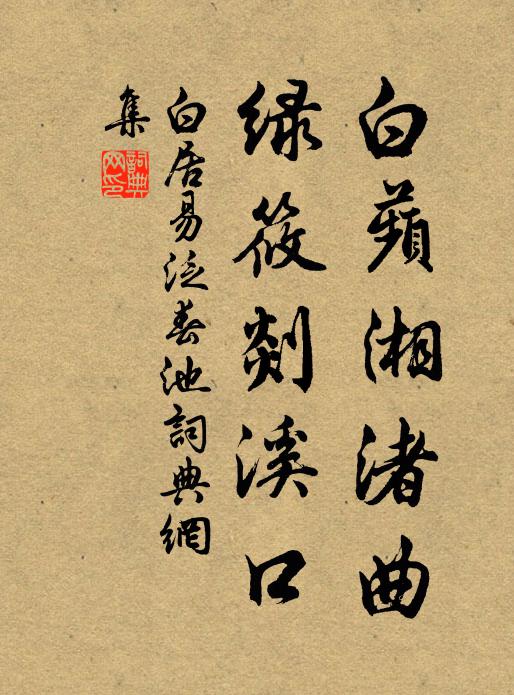 白蘋湘渚曲
綠筱剡溪口
白居易泛春池詞典網
集
詞典
网印